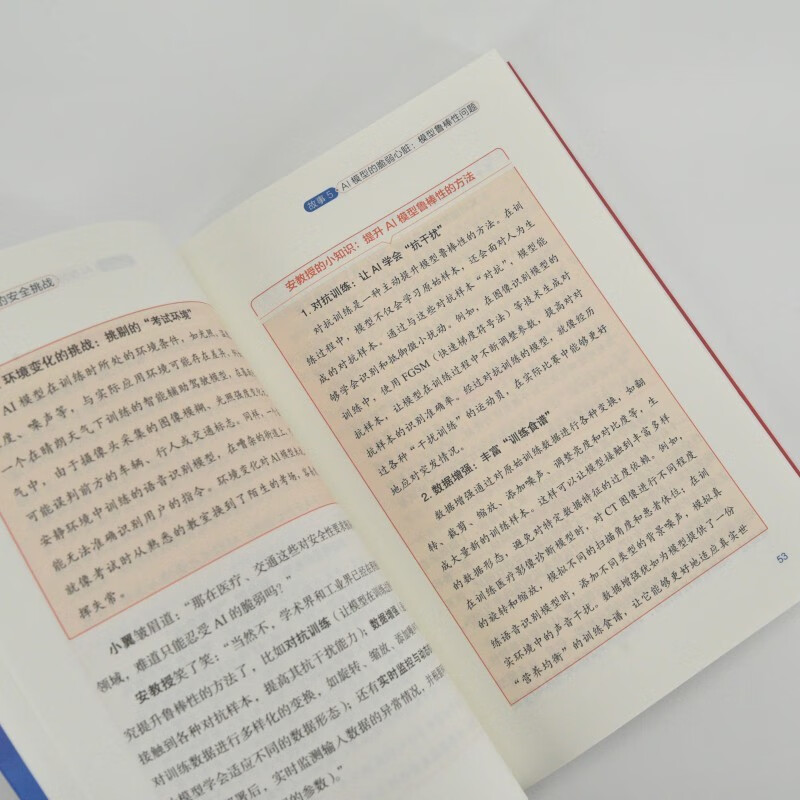 的安全挑战
环境变化的挑战：挑剔的“考试环境”
AI 模型在训练时所处的环境条件，如光照、温
度、噪声等，与实际应用环境可能存在差异。
一个在晴朗天气下训练的智能辅助驾驶模型，在
气中，由于摄像头采集的图像模糊、光照强度
可能误判前方的车辆、行人或交通标志。同样，一个
安静环境中训练的语音识别模型，在嘈杂的街道上
能无法准确识别用户的指令。环境变化对 AI 模型
就像考试时从熟悉的教室换到了陌生的考场，
挥失常。
小翼皱眉道：“那在医疗、交通这些对安全性要求
领域，难道只能忍受 AI 的脆弱吗？”
安教授笑了笑：“当然不，学术界和工业界已经
究提升鲁棒性的方法了，比如对抗训练（让模型在训练
接触到各种对抗样本，提高其抗干扰能力）；数据增强
对训练数据进行多样化的变换，如旋转、缩放、添加
模型学会适应不同的数据形态）；还有实时监控与
署后，实时监测输入数据的异常情况，并根
的参数）。”
故事 5 AI 模型的脆弱心脏：模型鲁棒性问题
安教授的小知识：提升 AI 模型鲁棒性的方法
1. 对抗训练：让 AI 学会“抗干扰”
对抗训练是一种主动提升模型鲁棒性的方法。在训
练过程中，模型不仅会学习原始样本，还会面对人为生
成的对抗样本。通过与这些对抗样本“对抗”，模型能
够学会识别和抵御微小扰动。例如，在图像识别模型的
训练中，使用 FGSM（快速梯度符号法）等技术生成对
抗样本，让模型在训练过程中不断调整参数，提高对对
抗样本的识别准确率。经过对抗训练的模型，就像经历
过各种“干扰训练”的运动员，在实际比赛中能够更好
地应对突发情况。
2. 数据增强：丰富“训练食谱”
数据增强通过对原始训练数据进行各种变换，如翻
转、裁剪、缩放、添加噪声、调整亮度和对比度等，生
成大量新的训练样本。这样可以让模型接触到丰富多样
的数据形态，避免对特定数据特征的过度依赖。例如，
在训练医疗影像诊断模型时，对 CT 图像进行不同程度
的旋转和缩放，模拟不同的扫描角度和患者体位；在训
练语音识别模型时，添加不同类型的背景噪声，模拟真
实环境中的声音干扰。数据增强犹如为模型提供了一份
“营养均衡”的训练食谱，让它能够更好地适应真实世
53